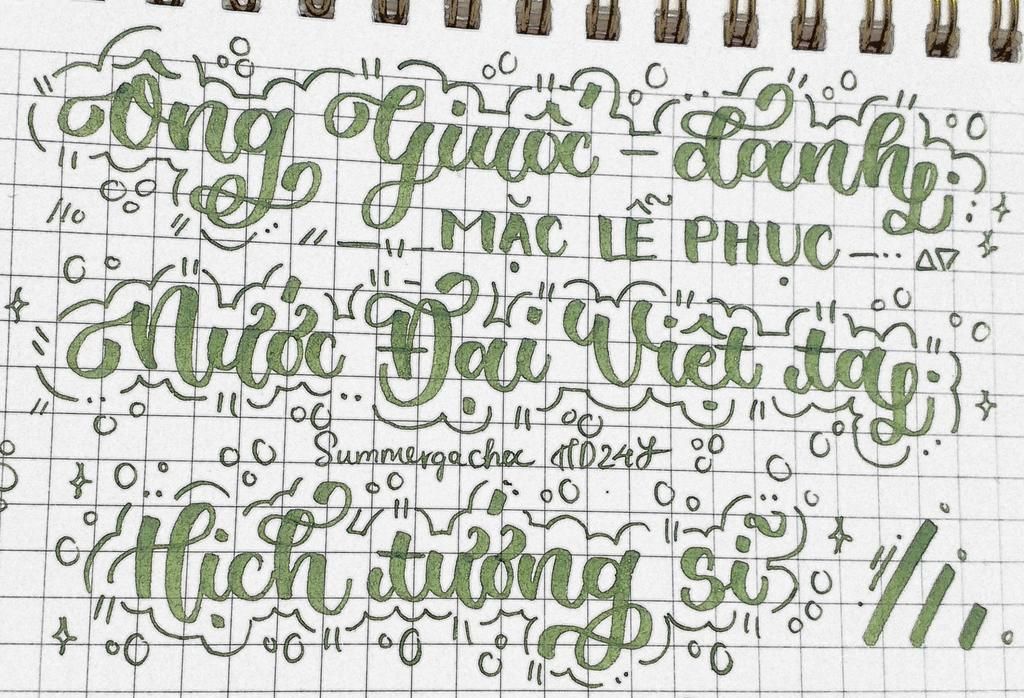 Ông Giuốc - đanh
MẶC LỄ PHỤC
Nước Đại Việt ta
Summergacha HD24Y
Hịch tướng sĩ